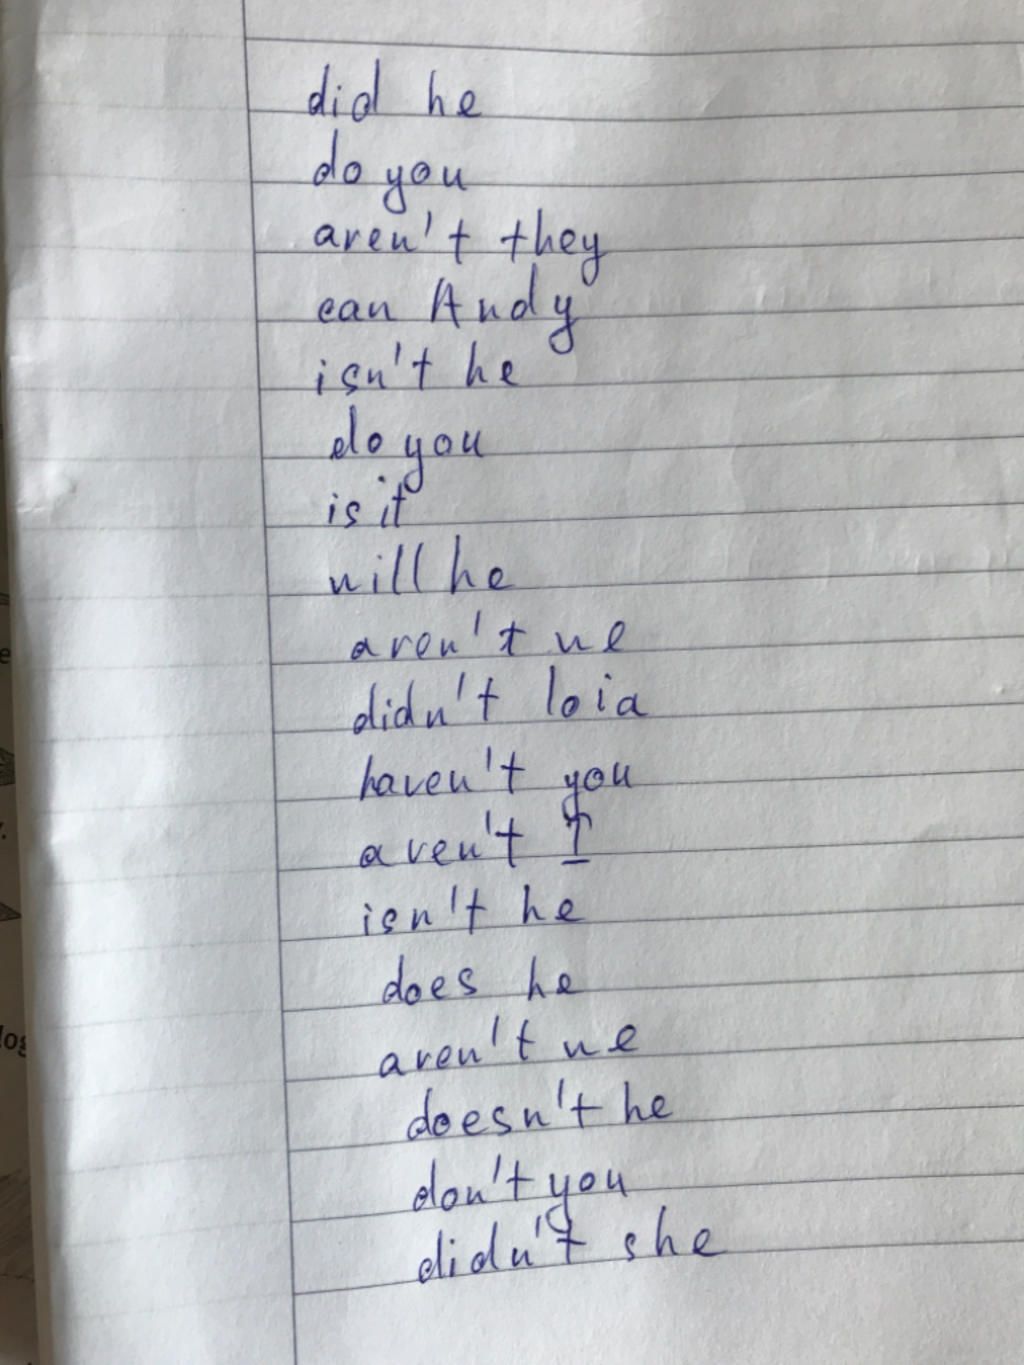 did he
do you
aren't they
can Andy
isn't he
do you
is it
will he
aren't we
didn't loia
haven't you
aren't I
isn't he
does he
aren't we
doesn't he
don't you
didn't she